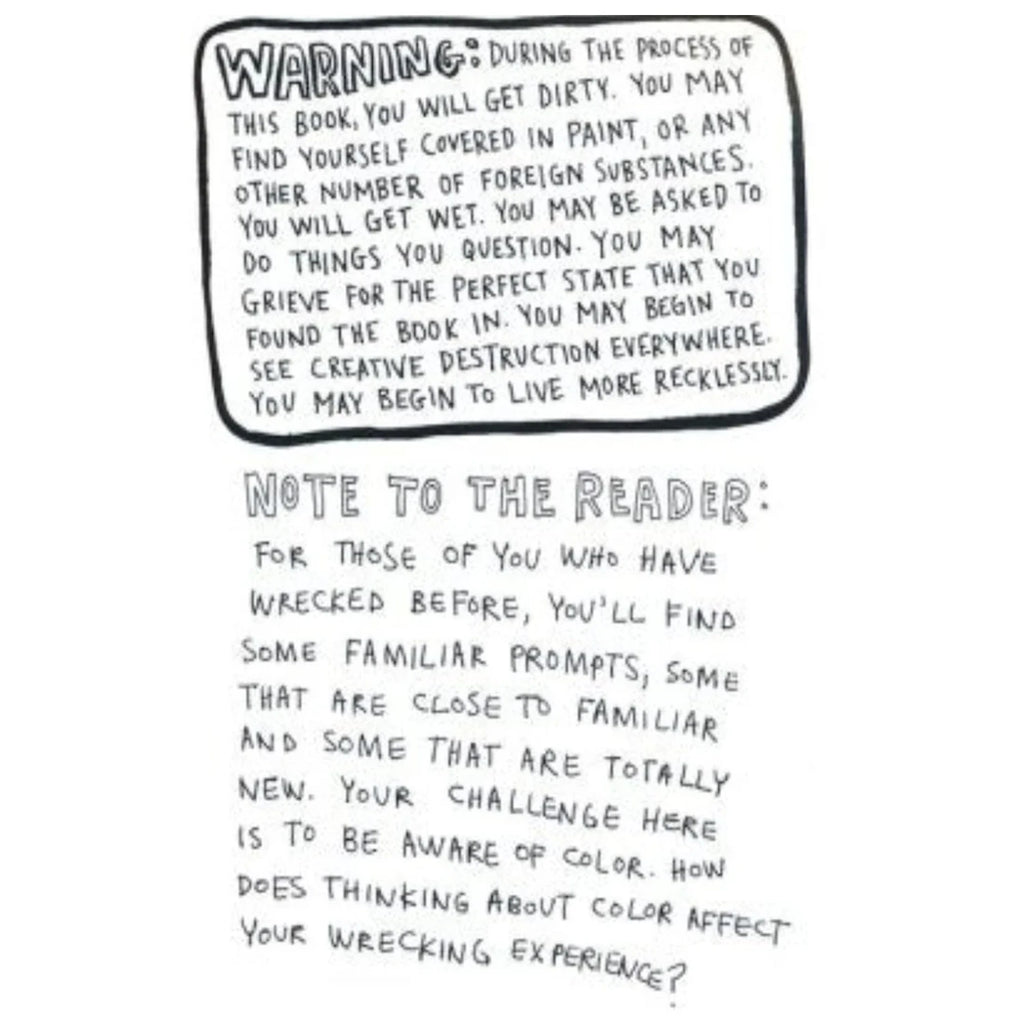 WARNING: DURING THE PROCESS OF
THIS BOOK, YOU WILL GET DIRTY. YOU MAY
FIND YOURSELF COVERED IN PAINT, OR ANY
OTHER NUMBER OF FOREIGN SUBSTANCES.
YOU WILL GET WET. YOU MAY BE ASKED TO
DO THINGS YOU QUESTION. YOU MAY
GRIEVE FOR THE PERFECT STATE THAT YOU
FOUND THE BOOK IN. YOU MAY BEGIN TO
SEE CREATIVE DESTRUCTION EVERYWHERE.
YOU MAY BEGIN TO LIVE MORE RECKLESSLY.
NOTE TO THE READER:
FOR THOSE OF YOU WHO HAVE
WRECKED BEFORE, YOU'LL FIND
SOME FAMILIAR PROMPTS, SOME
THAT ARE CLOSE TO FAMILIAR
AND SOME THAT ARE TOTALLY
NEW. YOUR CHALLENGE HERE
IS TO BE AWARE OF COLOR. HOW
DOES THINKING ABOUT COLOR AFFECT
YOUR WRECKING EXPERIENCE?